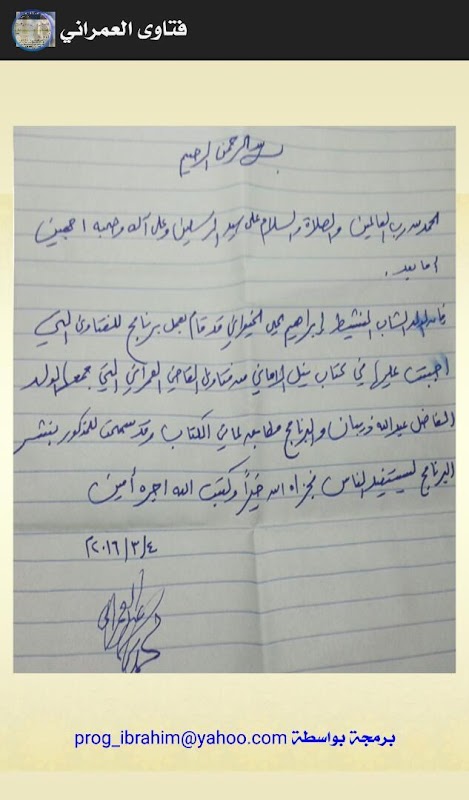 فتاوى العمراني
بسم الله الرحمن الرحيم
الحمد لله رب العالمين والصلاة والسلام على سيد المرسلين وعلى آله وصحبه اجمعين
اما بعد .
فان الولد الشاب النشيط إبراهيم يحيى قد قام بعمل برنامج للفتاوى التي
اجبت عليها في كتاب نيل الاماني من فتاوى القاضي العمراني التي جمعها الولد
الفاضل عبدالله والبرنامج مطابق لما في الكتاب وقد سمحت للمذكور بنشر
البرنامج ليستفيد الناس فجزاه الله خيراً وكتب الله اجره آمين
٢٠١٦/٣/٤م
برمجة بواسطة prog_ibrahim@yahoo.com